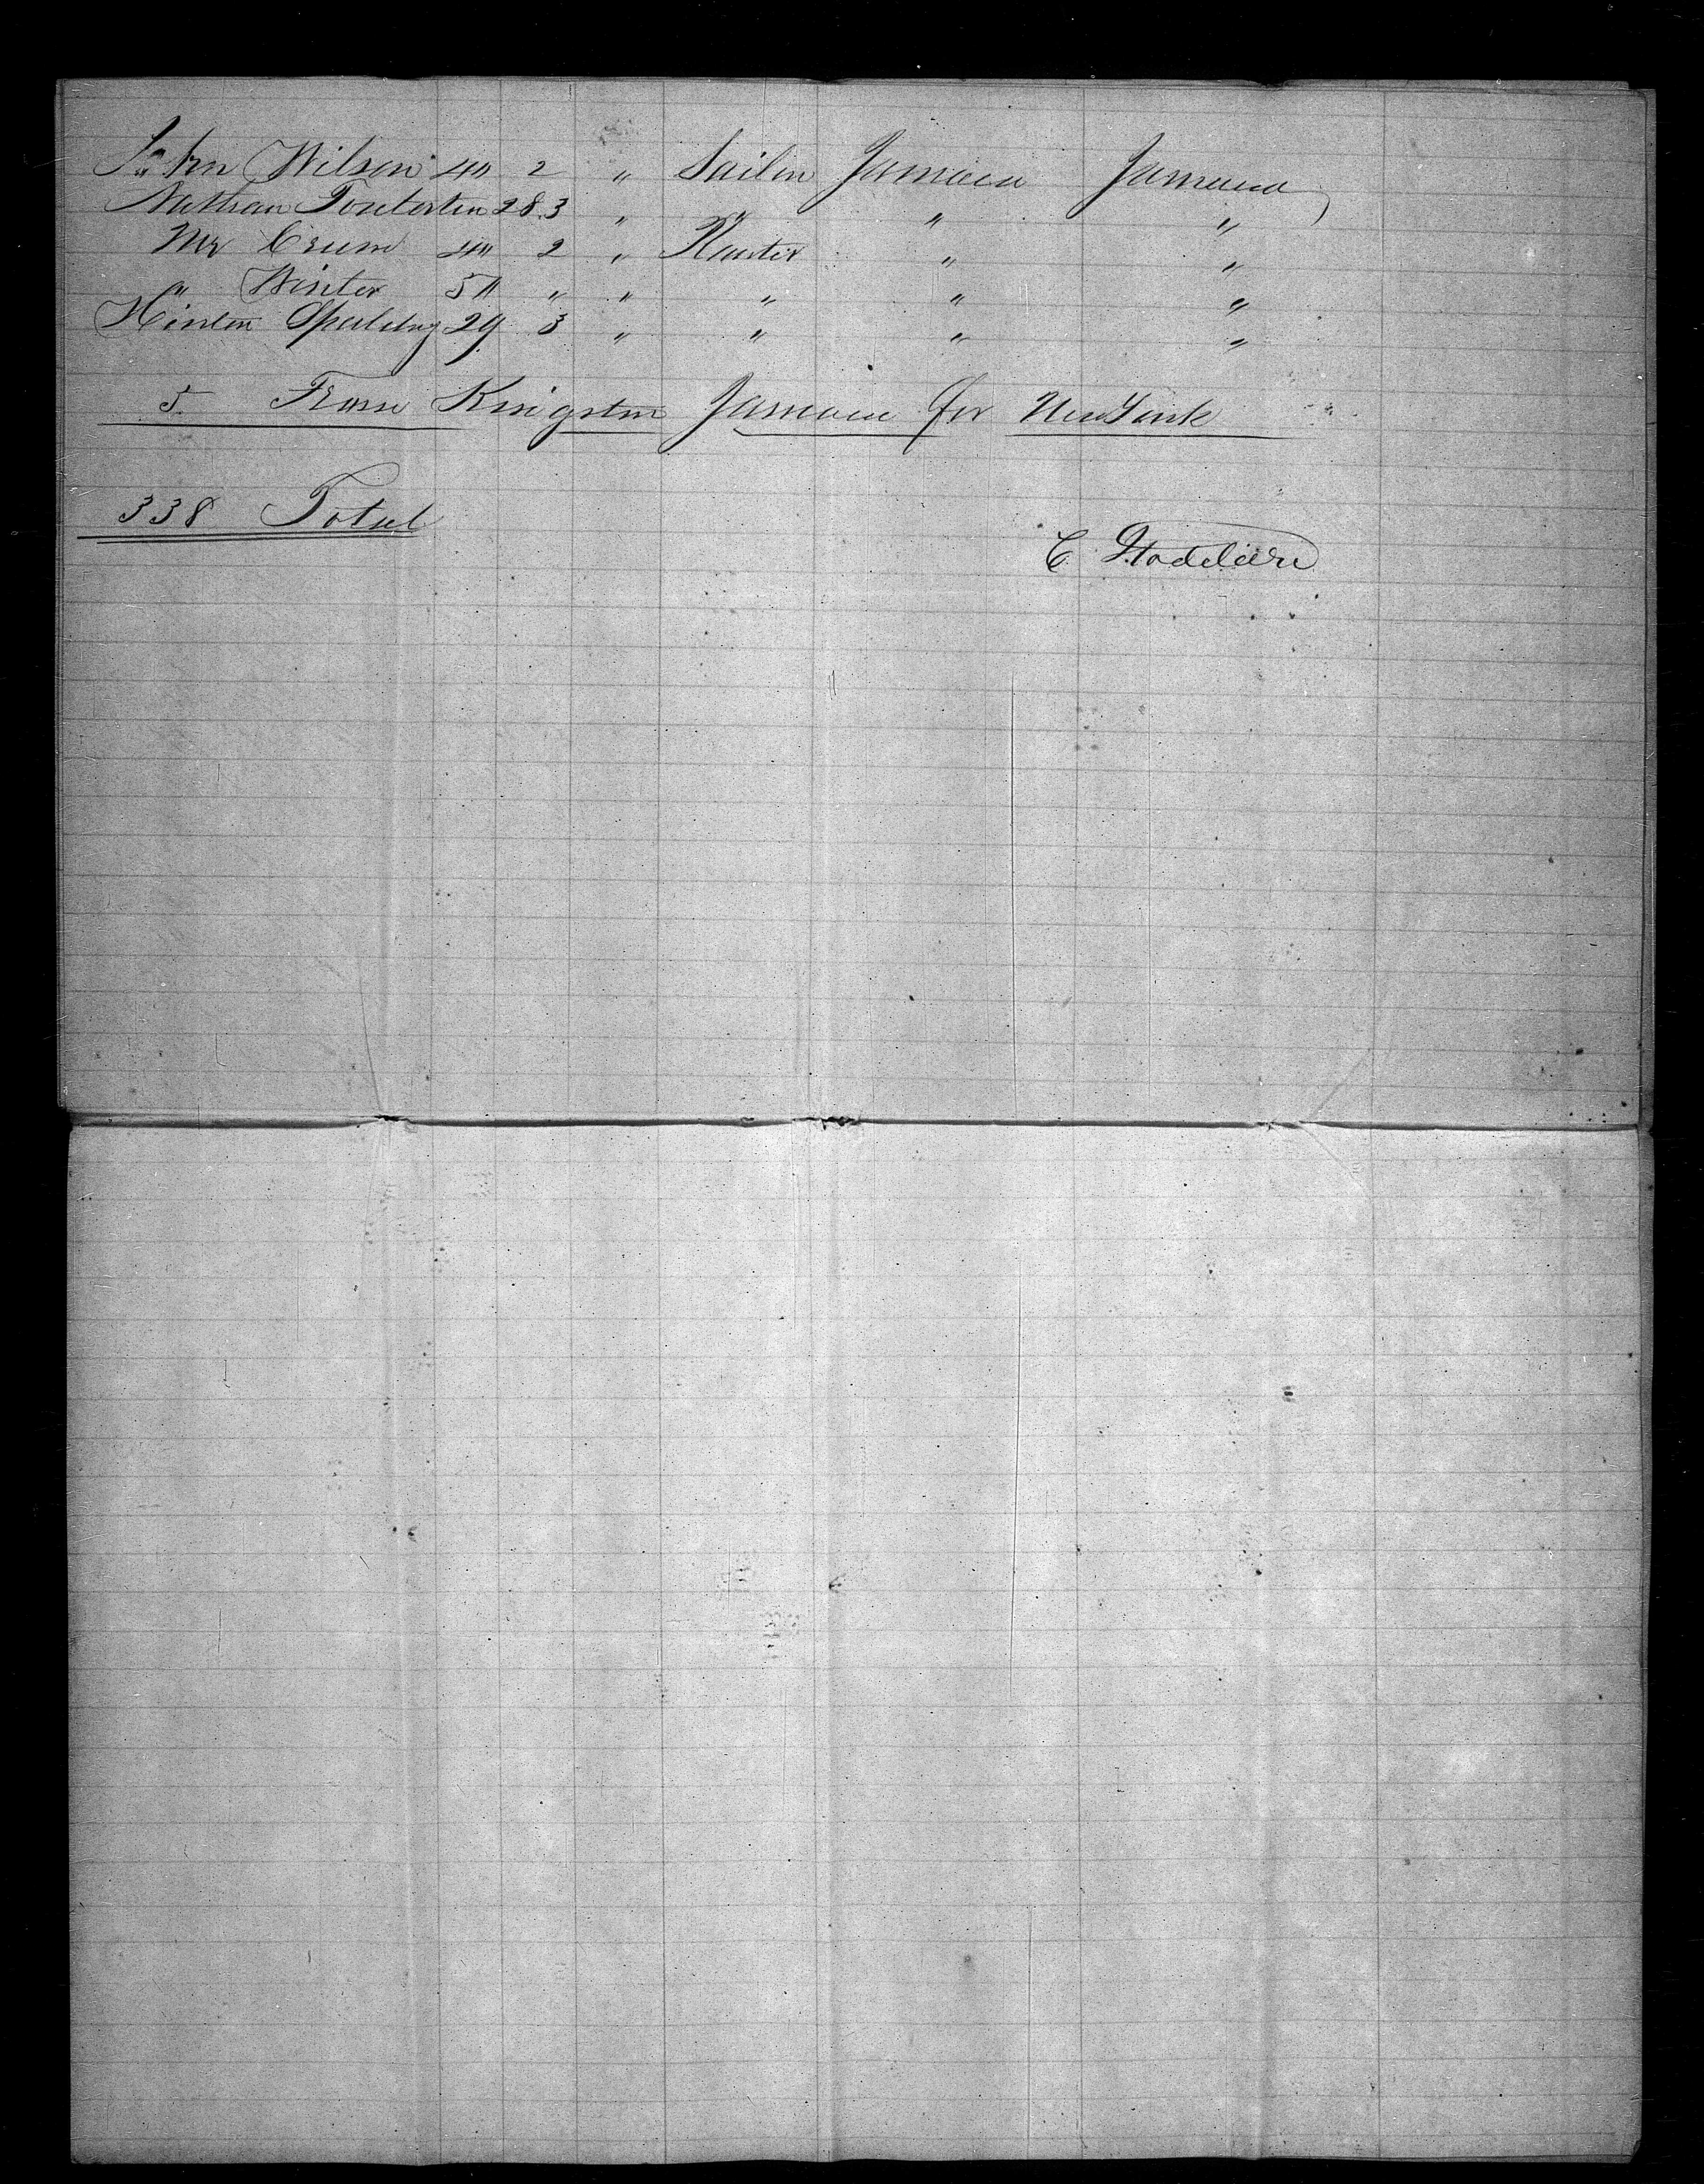 John Wilson 40 2 " Sailor Jamaica Jamaica
Nathan 28 3 " " " "
Mr Crum 40 2 " Planter " "
" Winter 50 " " " " "
Hinton Spalding 29 3 " " " "
5 From Kingston Jamaica for New York
338 Total
C